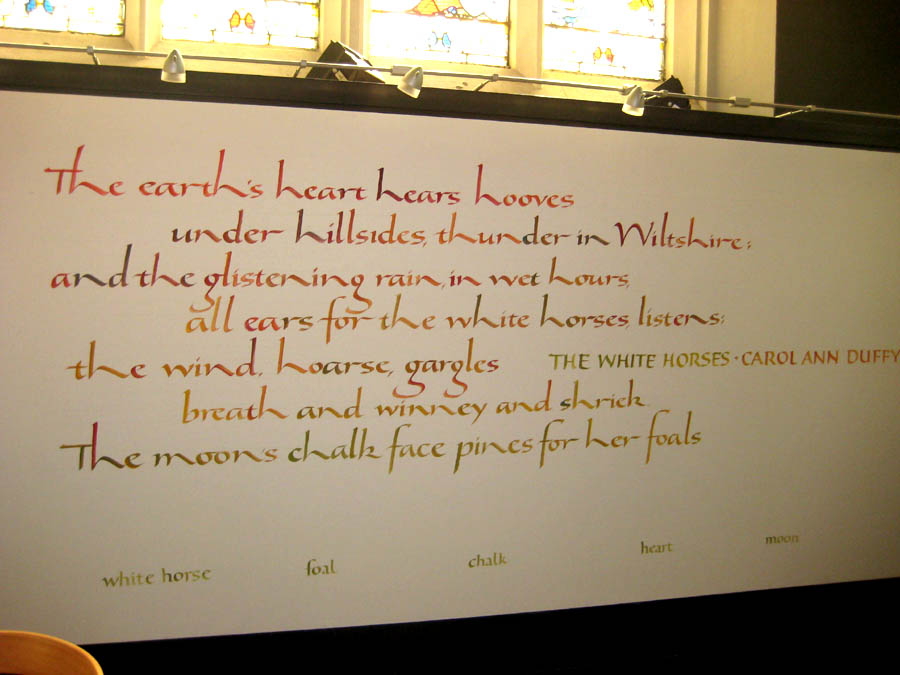 The earth's heart hears hooves
under hillsides, thunder in Wiltshire;
and the glistening rain, in wet hours,
all ears for the white horses, listens;
the wind, hoarse, gargles
THE WHITE HORSES · CAROL ANN DUFFY
breath and winney and shriek.
The moon's chalk face pines for her foals
white horse foal chalk heart moon